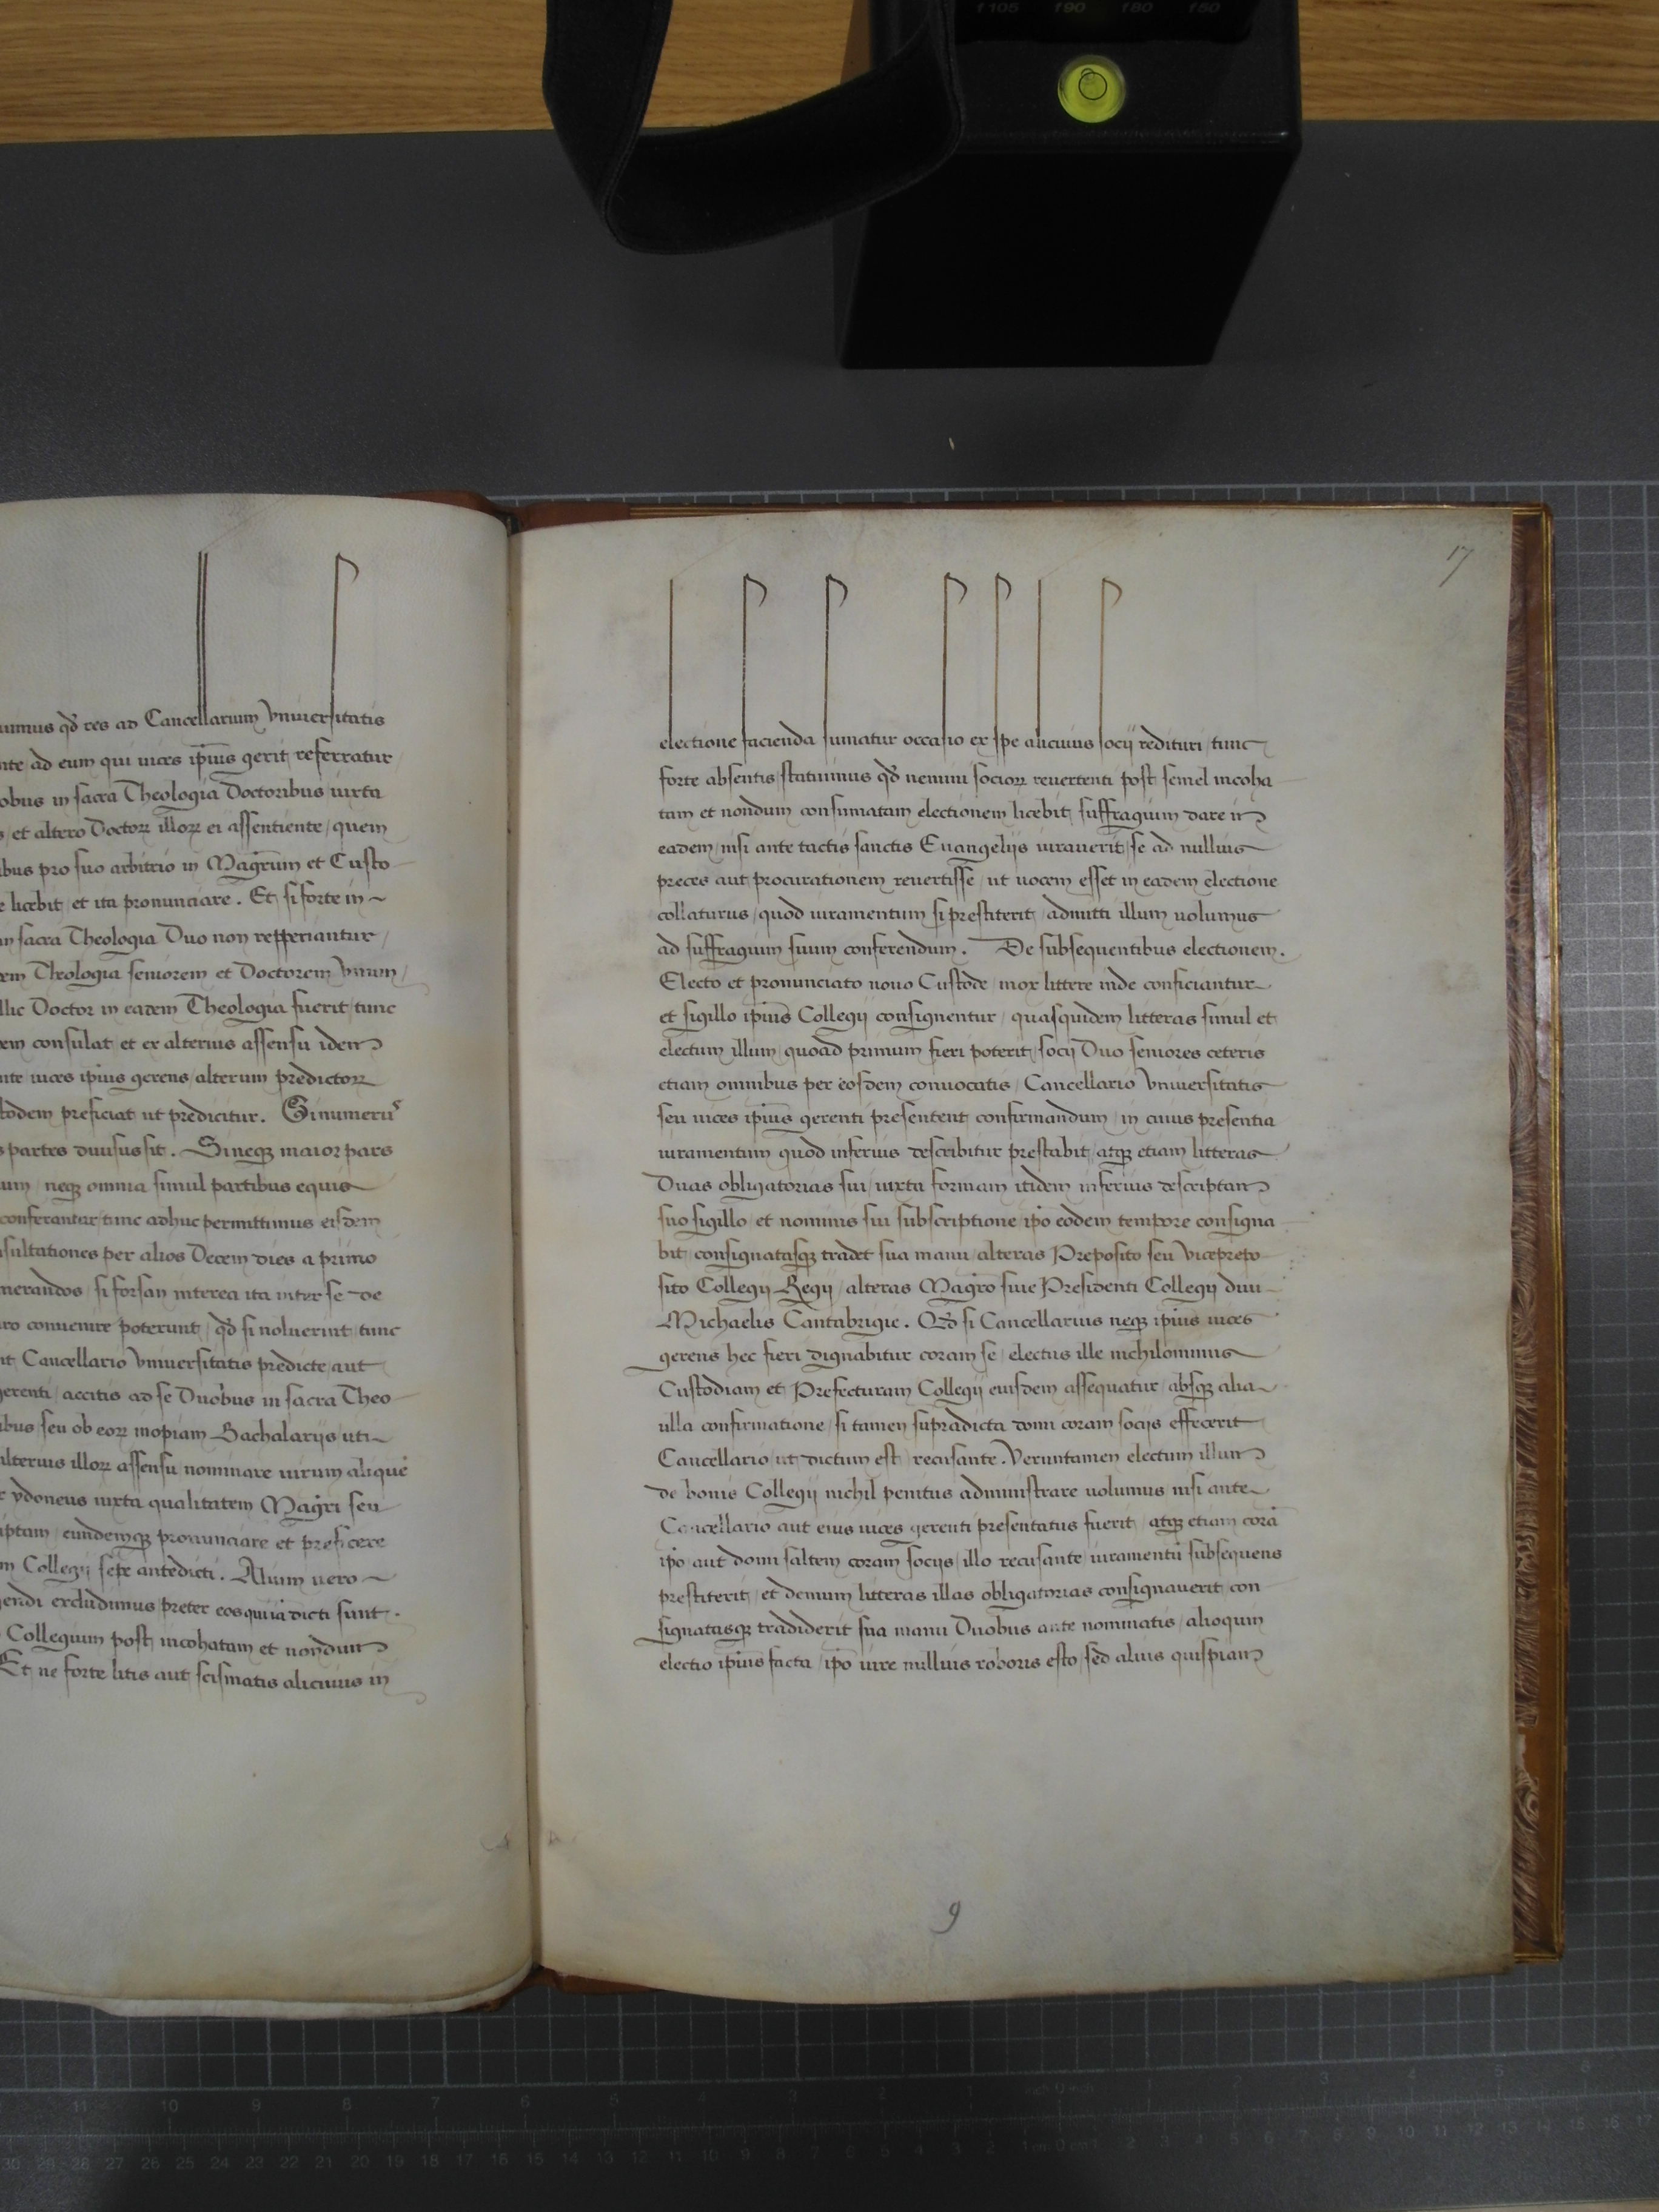 f105 f90 f80 f50
umus qd̄ res ad Cancellarium Vniuersitatis
nte / ad eum qui uices ip̄ius gerit / referratur /
obus in sacra Theologia Doctoribus iuxta
s / et altero Doctoꝝ illoꝝ ei assentiente / quem
ibus pro suo arbitrio in Magr̄um et Custo
e licebit / et ita pronunciare . Et si forte in
in sacra Theologia Duo non repperiantur /
em Theologia seniorem et Doctorem Vnum /
llic Doctor in eadem Theologia fuerit / tunc
em consulat et ex alterius assensu idem
nte uices ip̄ius gerens / alterum predictoꝝ
todem preficiat ut predicitur . Si numerus
s partes diuisus sit . Sineqꝫ maior pars
um / neqꝫ omnia simul partibus equis
conferantur / tunc adhuc permittimus eisdem
nsultationes per alios Decem dies a primo
merandos / si forsan interea ita inter se de
ro conuenire poterunt / qd̄ si noluerint / tunc
it Cancellario Vniuersitatis predicte / aut
gerenti / accitis ad se Duobus in sacra Theo
ibus / seu ob eoꝝ inopiam Bachalarijs uti
alterius illoꝝ assensu nominare uirum aliquē
r ydoneus iuxta qualitatem Magr̄i seu
iptam / eundemqꝫ pronunciare et preficere
m Collegij sepe antedicti . Alium uero
gendi excludimus / preter eos qui iā dicti sunt .
Collegium post incohatam et nondum
Et ne forte litis aut scismatis alicuius in
17
electione facienda sumatur occasio ex spe alicuius socij redituri / tunc
forte absentis / statuimus qd̄ nemini socioꝝ reuertenti post semel incoha
tam et nondum consumatam electionem licebit / suffragium dare in
eadem / nisi ante tactis sanctis Euangelijs iurauerit / se ad nullius
preces aut procurationem reuertisse / ut uocem esset in eadem electione
collaturus / quod iuramentum si prestiterit / admitti illum uolumus
ad suffragium suum conferendum . De subsequentibus electionem .
Electo et pronunciato nouo Custode / mox littere inde conficiantur
et sigillo ip̄ius Collegij consignentur / quasquidem litteras simul et
electum illum / quoad primum fieri poterit / socij Duo seniores ceteris
etiam omnibus per eosdem conuocatis / Cancellario Vniuersitatis
seu uices ip̄ius gerenti presentent confirmandum / in cuius presentia
iuramentum quod inferius describitur prestabit / atqꝫ etiam litteras
Duas obligatorias sui / iuxta formam itidem inferius descriptam
suo sigillo et nominis sui subscriptione ip̄o eodem tempore consigna
bit / consignatasqꝫ tradet sua manu / alteras Preposito seu Vicepreto
sito Collegij Regij / alteras Magr̄o siue Presidenti Collegij diui
Michaelis Cantabrigie . Qd̄ si Cancellarius neqꝫ ip̄ius uices
gerens hec fieri dignabitur coram se / electus ille nichilominus
Custodiam et Prefecturam Collegij eiusdem assequatur / absqꝫ alia
ulla confirmatione / si tamen supradicta domi coram socijs effecerit
Cancellario / ut dictum est / recusante . Veruntamen electum illum
de bonis Collegij nichil penitus administrare uolumus nisi ante
Cancellario aut eius uices gerenti presentatus fuerit / atqꝫ etiam corā
ip̄o / aut domi saltem coram socijs / illo recusante / iuramentū subsequens
prestiterit / et demum litteras illas obligatorias consignauerit / con
signatasqꝫ tradiderit sua manu Duobus ante nominatis / alioquin
electio ip̄ius facta / ip̄o iure nullius roboris esto / sed alius quispiam
9